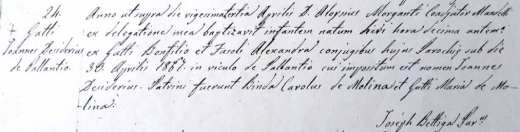 24. Anno ut supra die vigesimatertia Aprilis D. Aloysius Morganti Coadjutor
Gatti ex delegatione mea baptizavit infantem natum heri hora decima antem.
Joannes Desiderius ex Gatti Bonfilio et Fasoli Alexandra conjugibus hujus Parochiæ sub die
de Pallantio. Aprilis 1867 in viculo de Pallantio cui impositum est nomen Joannes
Desiderius. Patrini fuerunt Binda Carolus de Molina et Gatti Maria de Mo-
lina.
Joseph Bettiga Par.